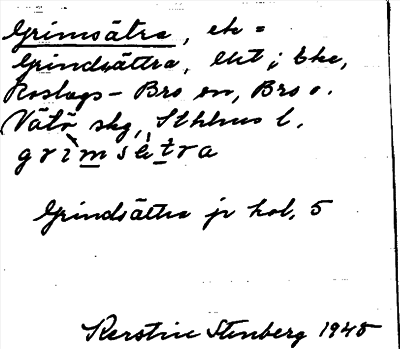 Grimsätra, ek =
Grindsättra, lht i Eke,
Roslags-Bro sn, Bro o.
Vätö skg, Sthlms l.
grìmsètra
Grindsättra jr kol. 5
Kerstin Stenberg 1945